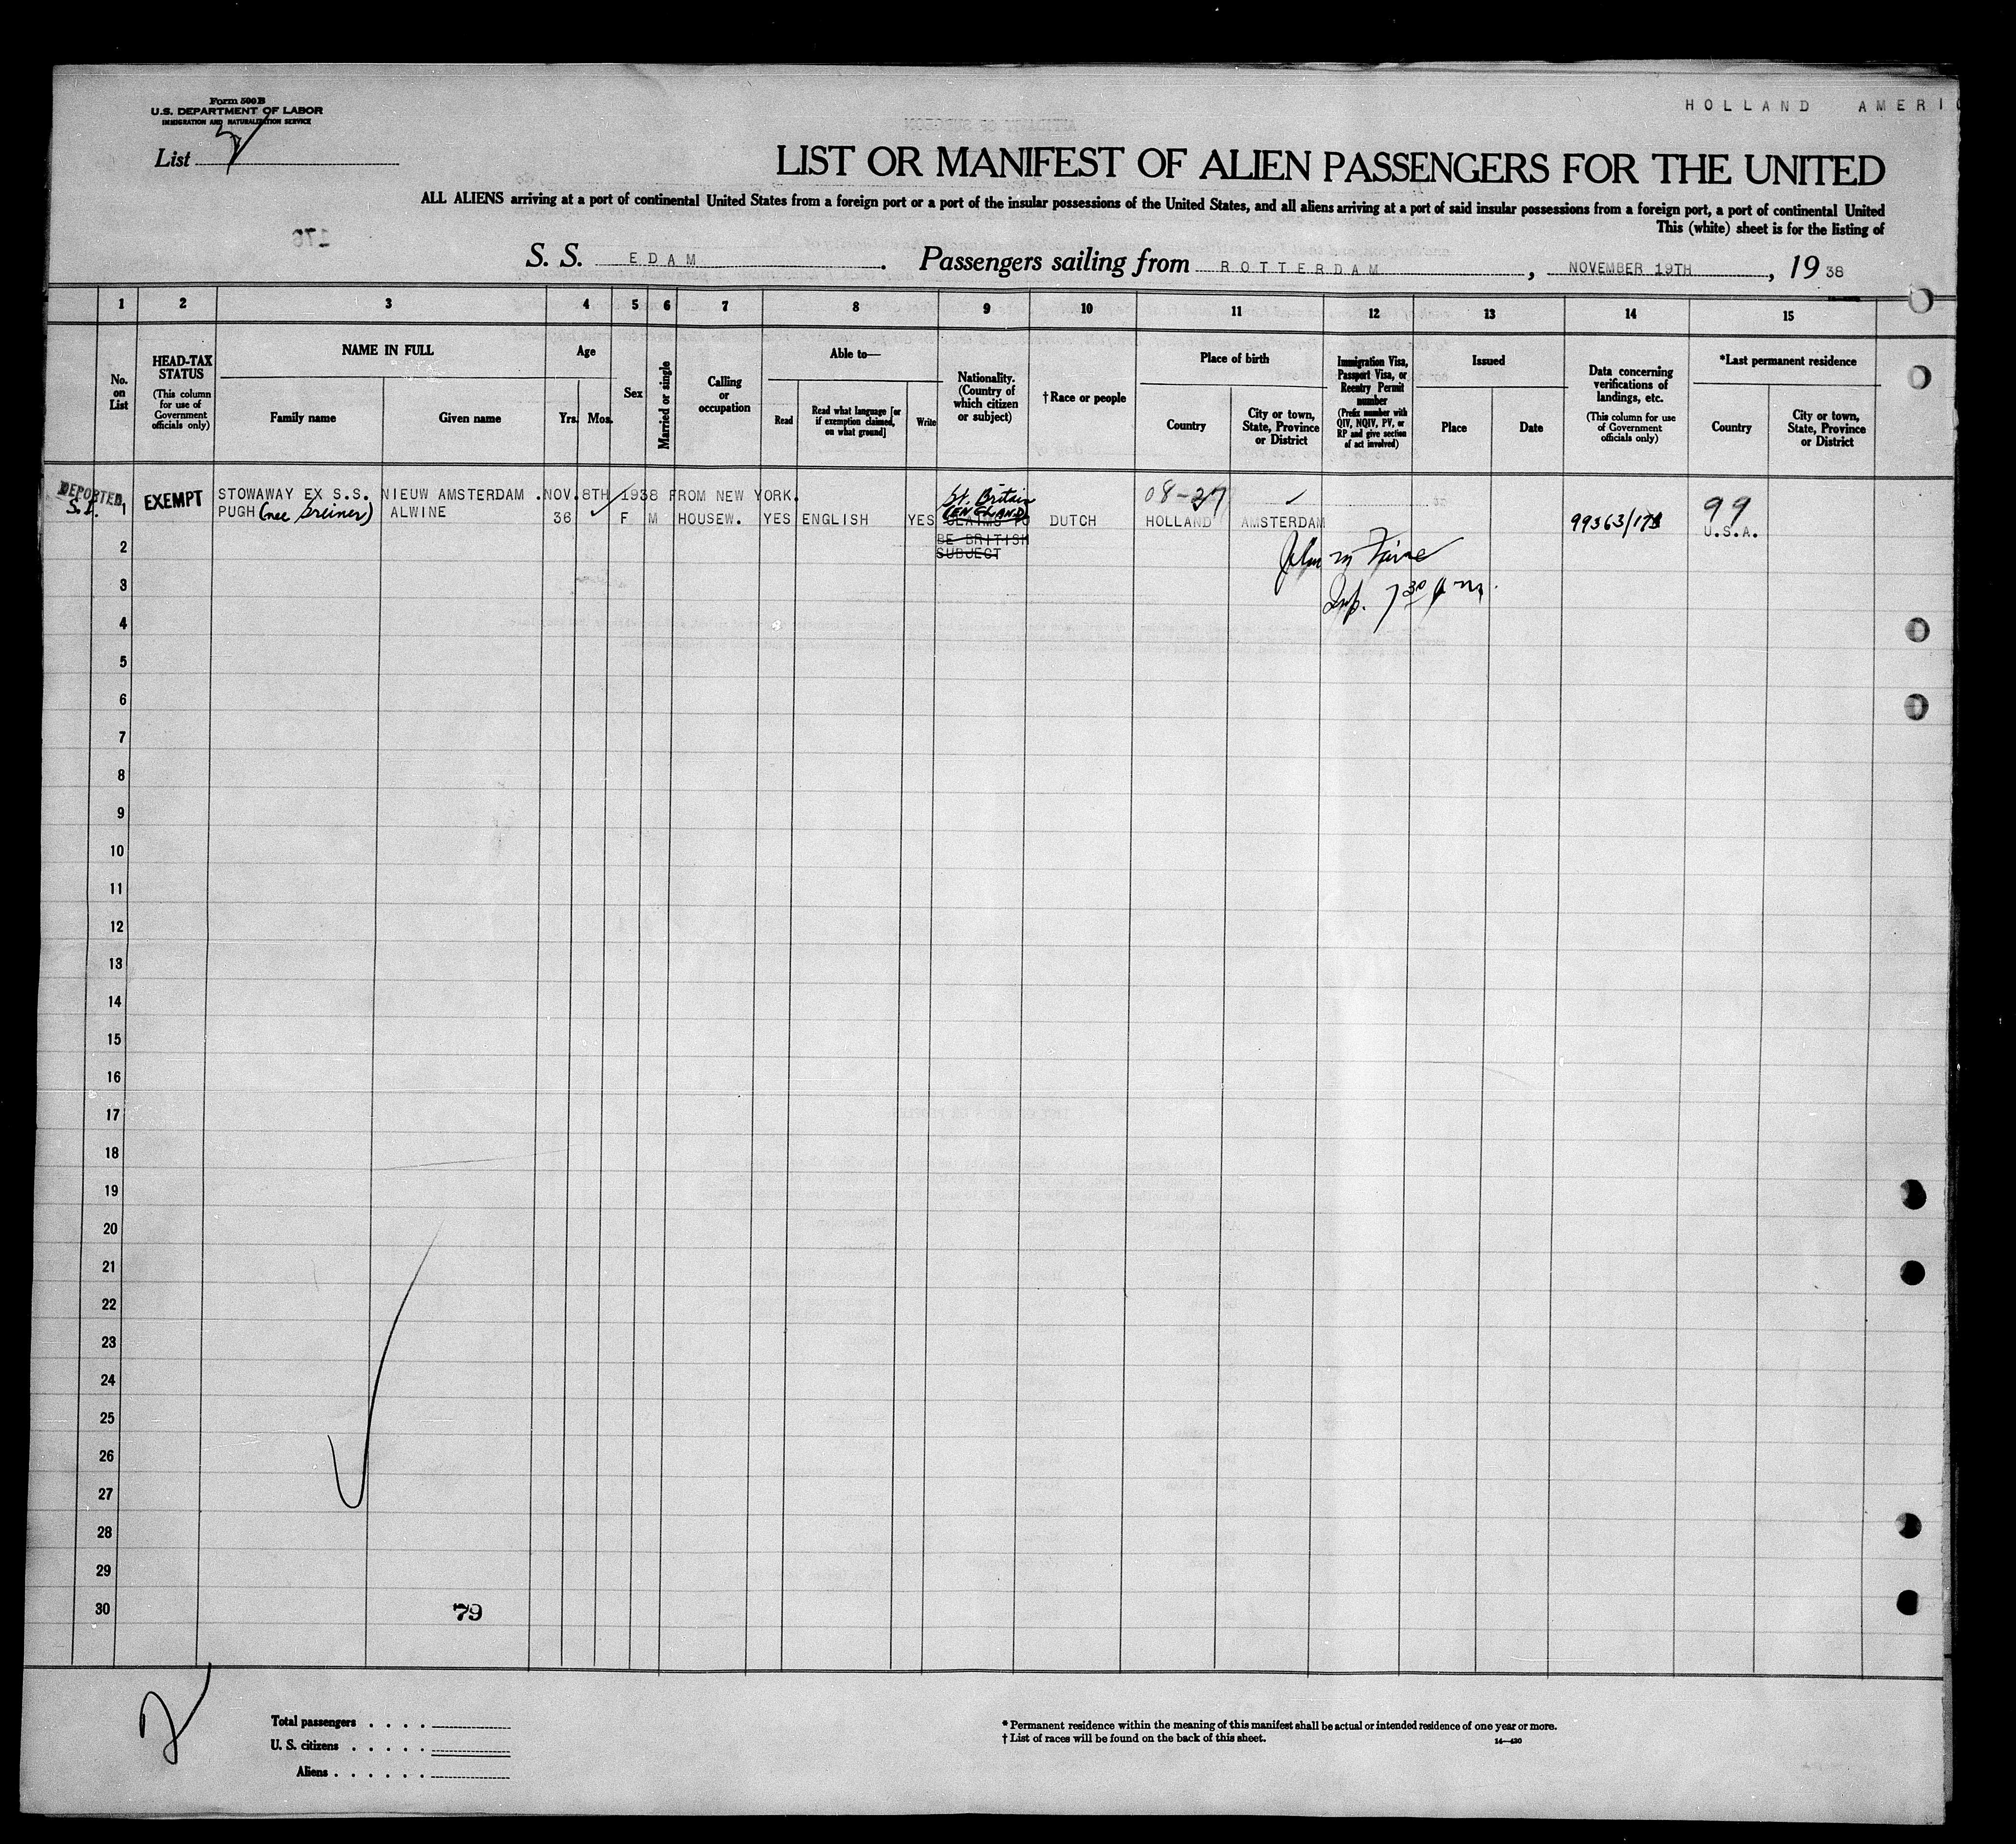 Form 500 B
U.S. DEPARTMENT OF LABOR
IMMIGRATION AND NATURALIZATION SERVICE
HOLLAND AMERIC
List
LIST OR MANIFEST OF ALIEN PASSENGERS FOR THE UNITED
ALL ALIENS arriving at a port of continental United States from a foreign port or a port of the insular possessions of the United States, and all aliens arriving at a port of said insular possessions from a foreign port, a port of continental United
This (white) sheet is for the listing of
176
S. S. EDAM. Passengers sailing from ROTTERDAM, NOVEMBER 19TH, 1938
1 2 3 4 5 6 7 8 9 10 11 12 13 14 15
No. on List
HEAD-TAX STATUS
(This column for use of Government officials only)
NAME IN FULL
Family name
Given name
Age
Yrs.
Mos.
Sex
Married or single
Calling or occupation
Able to—
Read
Read what language [or if exemption claimed, on what ground]
Write
Nationality. (Country of which citizen or subject)
†Race or people
Place of birth
Country
City or town, State, Province or District
Immigration Visa, Passport Visa, or Reentry Permit number
(Prefix number with QIV, NQIV, PV, or RP and give section of act involved)
Issued
Place
Date
Data concerning verifications of landings, etc.
(This column for use of Government officials only)
*Last permanent residence
Country
City or town, State, Province or District
DEPORTED. EXEMPT STOWAWAY EX S.S. NIEUW AMSTERDAM .NOV.8TH 1938 FROM NEW YORK. Gt. Britain 08-27 99
S.I. 1 PUGH (nee Greiner) ALWINE 36 F M HOUSEW. YES ENGLISH YES (ENGLAND) CLAIMS TO DUTCH HOLLAND AMSTERDAM 99363/178 U.S.A.
2 BE BRITISH
SUBJECT
John m
3 Insp. 7 30 p m.
4
5
6
7
8
9
10
11
12
13
14
15
16
17
18
19
20
21
22
23
24
25
26
27
28
29
30 79
Total passengers . . . .
U. S. citizens . . . . .
Aliens . . . . . .
* Permanent residence within the meaning of this manifest shall be actual or intended residence of one year or more.
† List of races will be found on the back of this sheet.
14—430